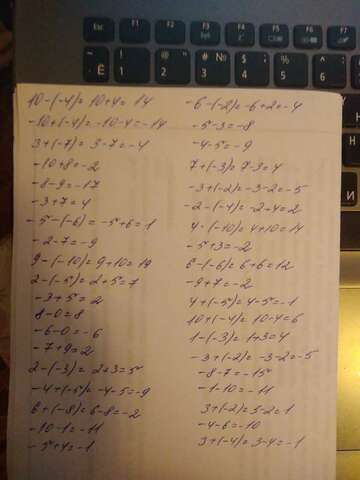 Esc
F1
F2
F3
F4
F5
F6
Ё
!
1
@ "
2
# №
3
$
4
%
5
6
10-(-4)=10+4=14
-10+(-4)=-10-4=-14
3+(-7)=3-7=-4
-10+8=-2
-8-9=-17
-3+7=4
-5-(-6)=-5+6=1
-2-7=-9
9-(-10)=9+10=19
2-(-5)=2+5=7
-3+5=2
8-0=8
-6-0=-6
-7+9=2
2-(-3)=2+3=5
-4+(-5)=-4-5=-9
6+(-8)=6-8=-2
-10-1=-11
-5+4=-1
-6-(-2)=-6+2=-4
-5-3=-8
-4-5=-9
7+(-3)=7-3=4
-3+(-2)=-3-2=-5
-2-(-4)=-2+4=2
4-(-10)=4+10=14
-5+3=-2
6-(-6)=6+6=12
-9+7=-2
4+(-5)=4-5=-1
10+(-4)=10-4=6
1-(-3)=1+3=4
-3+(-2)=-3-2=-5
-8-7=-15
-1-10=-11
3+(-2)=3-2=1
-4-6=-10
3+(-4)=3-4=-1